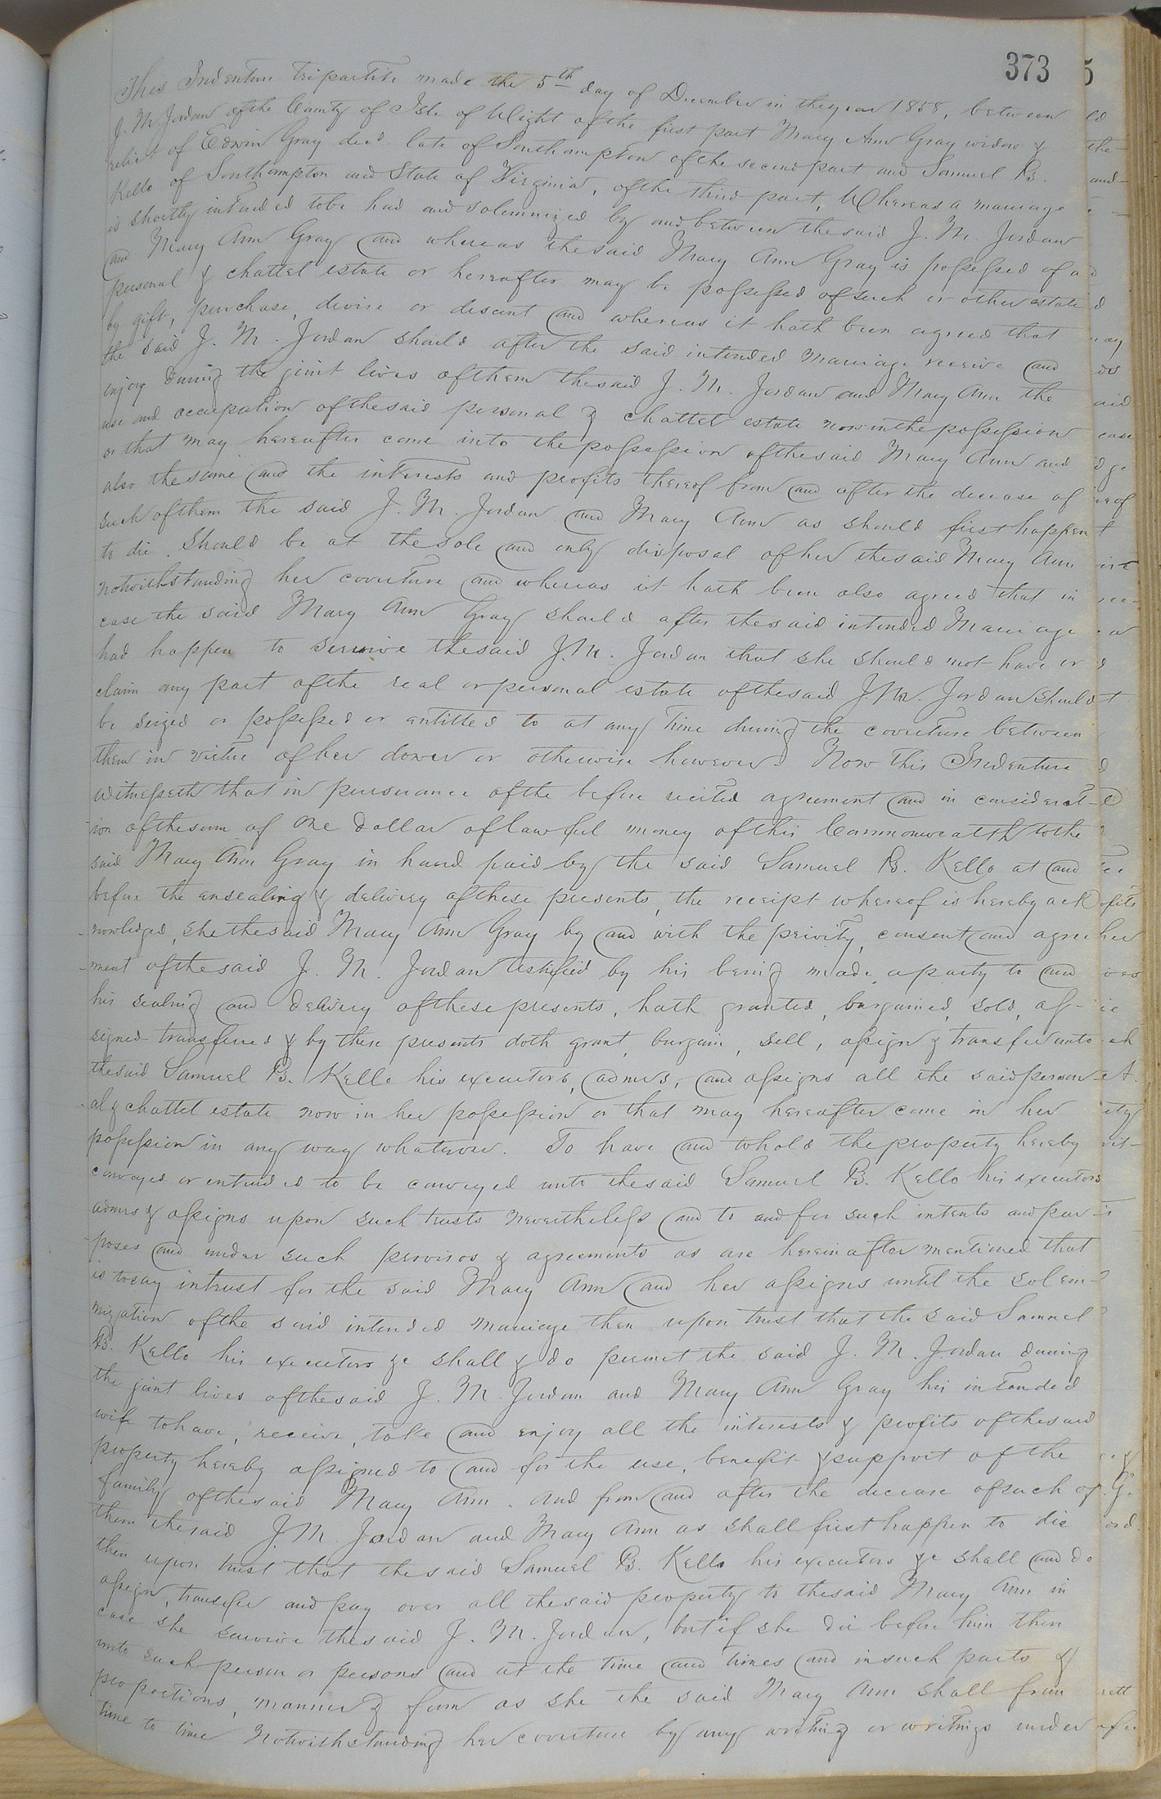 373
This Indenture tripartite made the 5th day of December in the year 1858, between
J. M. Jordan of the County of Isle of Wight of the first part Mary Ann Gray widow &
relict of Edwin Gray decd late of Southampton of the second part and Samuel B.
Kello of Southampton and State of Virginia, of the third part, Whereas a marriage
is shortly intended to be had and solemnized by and between the said J. M. Jordan
and Mary Ann Gray and whereas the said Mary Ann Gray is possessed of a
personal & chattel estate or hereafter may be possessed of such or other estate
by gift, purchase, devise or descent and whereas it hath been agreed that
the said J. M. Jordan should after the said intended marriage receive and
enjoy during the joint lives of them the said J. M. Jordan and Mary Ann the
use and occupation of the said personal & chattel estate now in the possession
or that may hereafter come into the possession of the said Mary Ann and
also the same and the interests and profits thereof from and after the decease of
such of them the said J. M. Jordan and Mary Ann as should first happen
to die. Should be at the sole and only disposal of her the said Mary Ann
notwithstanding her coverture and whereas it hath been also agreed that in
case the said Mary Ann Gray should after the said intended Marriage
had happen to survive the said J. M. Jordan that she should not have or
claim any part of the real or personal estate of the said J. M. Jordan should
be seized or possessed or entitled to at any time during the coverture between
them in virtue of her dower or otherwise however. Now this Indenture
witnesseth that in pursuance of the before recited agreement and in considerat-
ion of the sum of one dollar of lawful money of this Commonwealth to the
said Mary Ann Gray in hand paid by the said Samuel B. Kello at and
before the ensealing & delivery of these presents, the receipt whereof is hereby ack
nowledged, she the said Mary Ann Gray by and with the privity, consent and agree
ment of the said J. M. Jordan testified by his being made a party to and
his sealing and delivery of these presents, hath granted, bargained, sold, as-
signed transferred & by these presents doth grant, bargain, sell, assign & transfer unto
the said Samuel B. Kello his executors, admrs, and assigns all the said person
al & chattel estate now in her possession or that may hereafter come in her
possession in any way whatever. To have and to hold the property hereby
conveyed or intended to be conveyed unto the said Samuel B. Kello his executors
admrs & assigns upon such trusts nevertheless and to and for such intents and pur-
poses and under such provisos & agreements as are herein after mentioned that
is to say in trust for the said Mary Ann and her assigns until the solem-
nization of the said intended marriage then upon trust that the said Samuel
B. Kello his executors &c shall & do permit the said J. M. Jordan during
the joint lives of the said J. M. Jordan and Mary Ann Gray his intended
wife to have, receive, take and enjoy all the interests & profits of the said
property hereby assigned to and for the use, benefit & support of the
family of the said Mary Ann. And from and after the decease of such of
them the said J. M. Jordan and Mary Ann as shall first happen to die
then upon trust that the said Samuel B. Kello his executors &c shall and do
assign, transfer and pay over all the said property to the said Mary Ann in
case she survive the said J. M. Jordan, but if she die before him then
unto such person or persons and at the time and times and in such parts &
proportions, manner & form as she the said Mary Ann shall from
time to time Notwithstanding her coverture by any writing or writings under